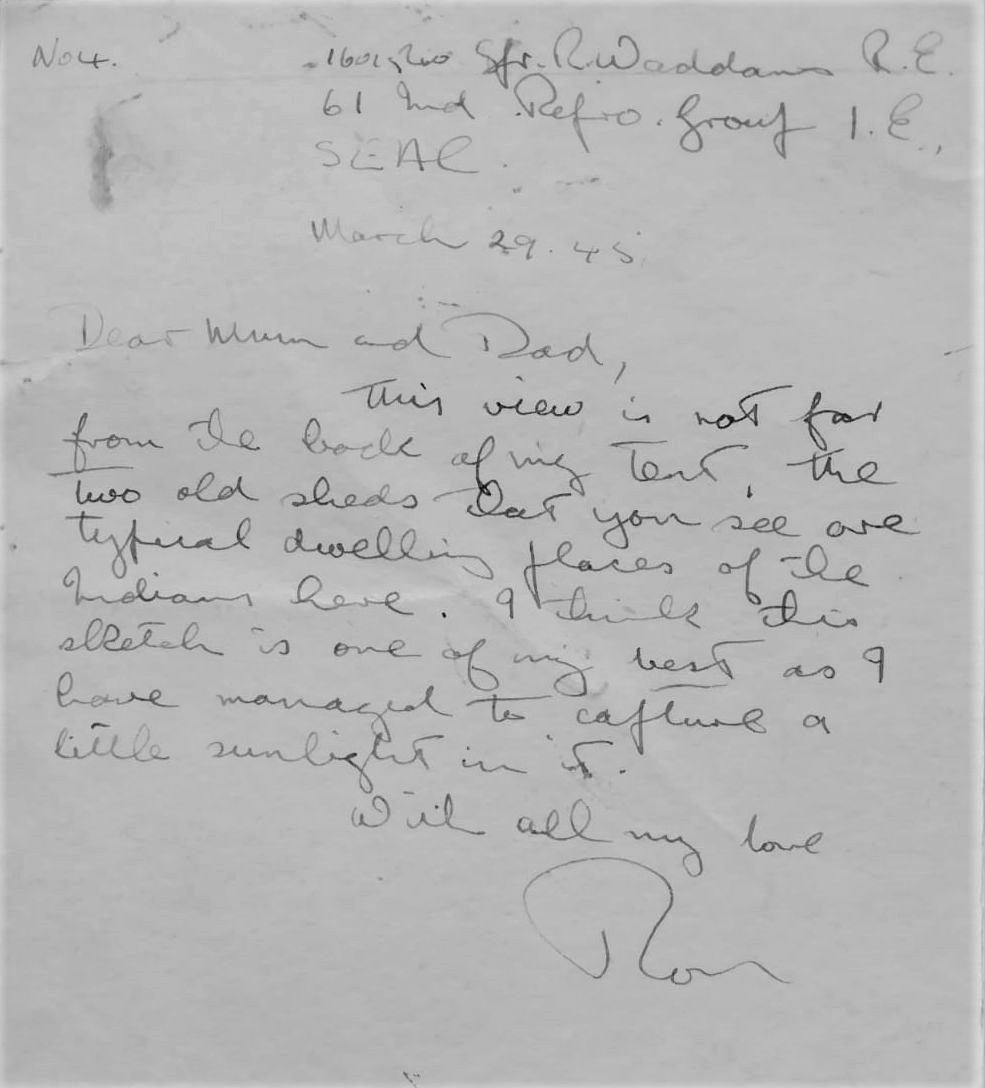 No 4. Spr. R. Waddams R.E.
61 Ind Repro. Group I.E.,
SEAC.
March 29. 45
Dear Mum and Dad,
This view is not far
from the back of my tent, the
two old sheds that you see are
typical dwelling places of the
Indians here. I think this
sketch is one of my best as I
have managed to capture a
little sunlight in it.
With all my love
Ron